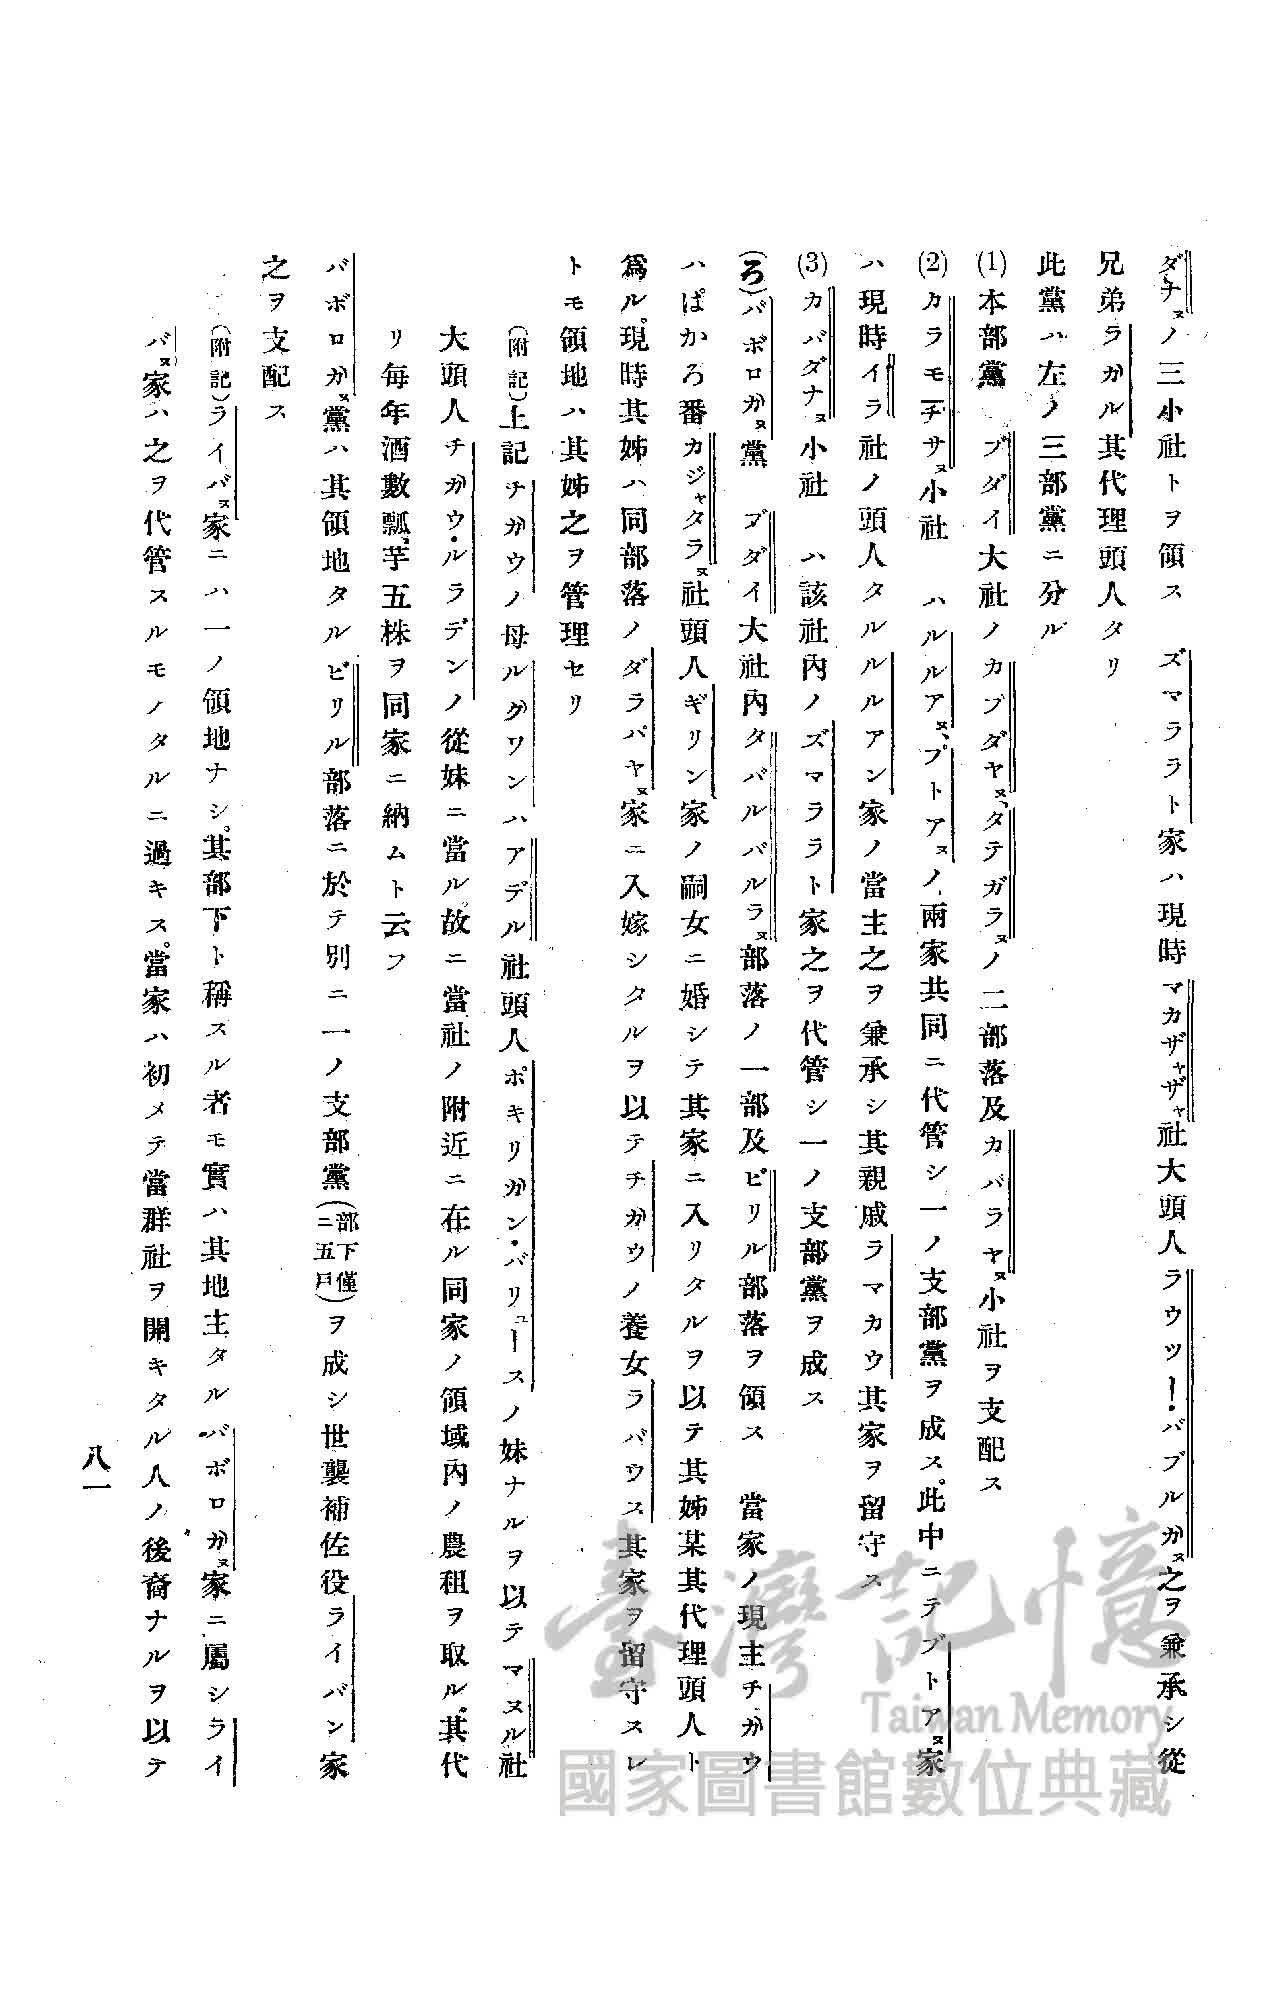 ダナヌノ三小社トヲ領ス　ズマララト家ハ現時マカザヤザヤ社大頭人ラウツー！バブルガヌ之ヲ兼承シ從
兄弟ラガル其代理頭人タリ
此黨ハ左ノ三部黨ニ分ル
(1)本部黨　ブダイ大社ノカブダヤヌ、タテガラヌノ二部落及カバラヤヌ小社ヲ支配ス
(2)カラモーチサヌ小社　ハルルアヌ、プトアヌノ兩家共同ニ代管シ一ノ支部黨ヲ成ス。此中ニテプトアヌ家
ハ現時イラ社ノ頭人タルルルアン家ノ當主之ヲ兼承シ其親戚ラマカウ其家ヲ留守ス
(3)カバダナヌ小社　ハ該社内ノズマララト家之ヲ代管シ一ノ支部黨ヲ成ス
(ろ)バボロガヌ黨　ブダイ大社内タバルバルラヌ部落ノ一部及ビリル部落ヲ領ス　當家ノ現主チガウ
ハぱかろ番カジャタラヌ社頭人ギリン家ノ嗣女ニ婚シテ其家ニ入リタルヲ以テ其姊某其代理頭人ト
爲ル。現時其姊ハ同部落ノダラパヤヌ家ニ入嫁シタルヲ以テチガウノ養女ラバウス其家ヲ留守スレ
トモ領地ハ其姊之ヲ管理セリ
(附記)上記チガウノ母ルグワンハアデル社頭人ポキリガン・バリュースノ妹ナルヲ以テマヌル社
大頭人チガウ・ルラデンノ從妹ニ當ル。故ニ當社ノ附近ニ在ル同家ノ領域内ノ農租ヲ取ル。其代
リ毎年酒數瓢、芋五株ヲ同家ニ納ムト云フ
バボロガヌ黨ハ其領地タルビリル部落ニ於テ別ニ一ノ支部黨(部下僅ニ五戸)ヲ成シ世襲補佐役ライバン家
之ヲ支配ス
(附記)ライバヌ家ニハ一ノ領地ナシ。其部下ト稱スル者モ實ハ其地主タルバボロガヌ家ニ屬シライ
バヌ家ハ之ヲ代管スルモノタルニ過キス。當家ハ初メテ當群社ヲ開キタル人ノ後裔ナルヲ以テ
八一
臺灣記憶
Taiwan Memory
國家圖書館數位典藏